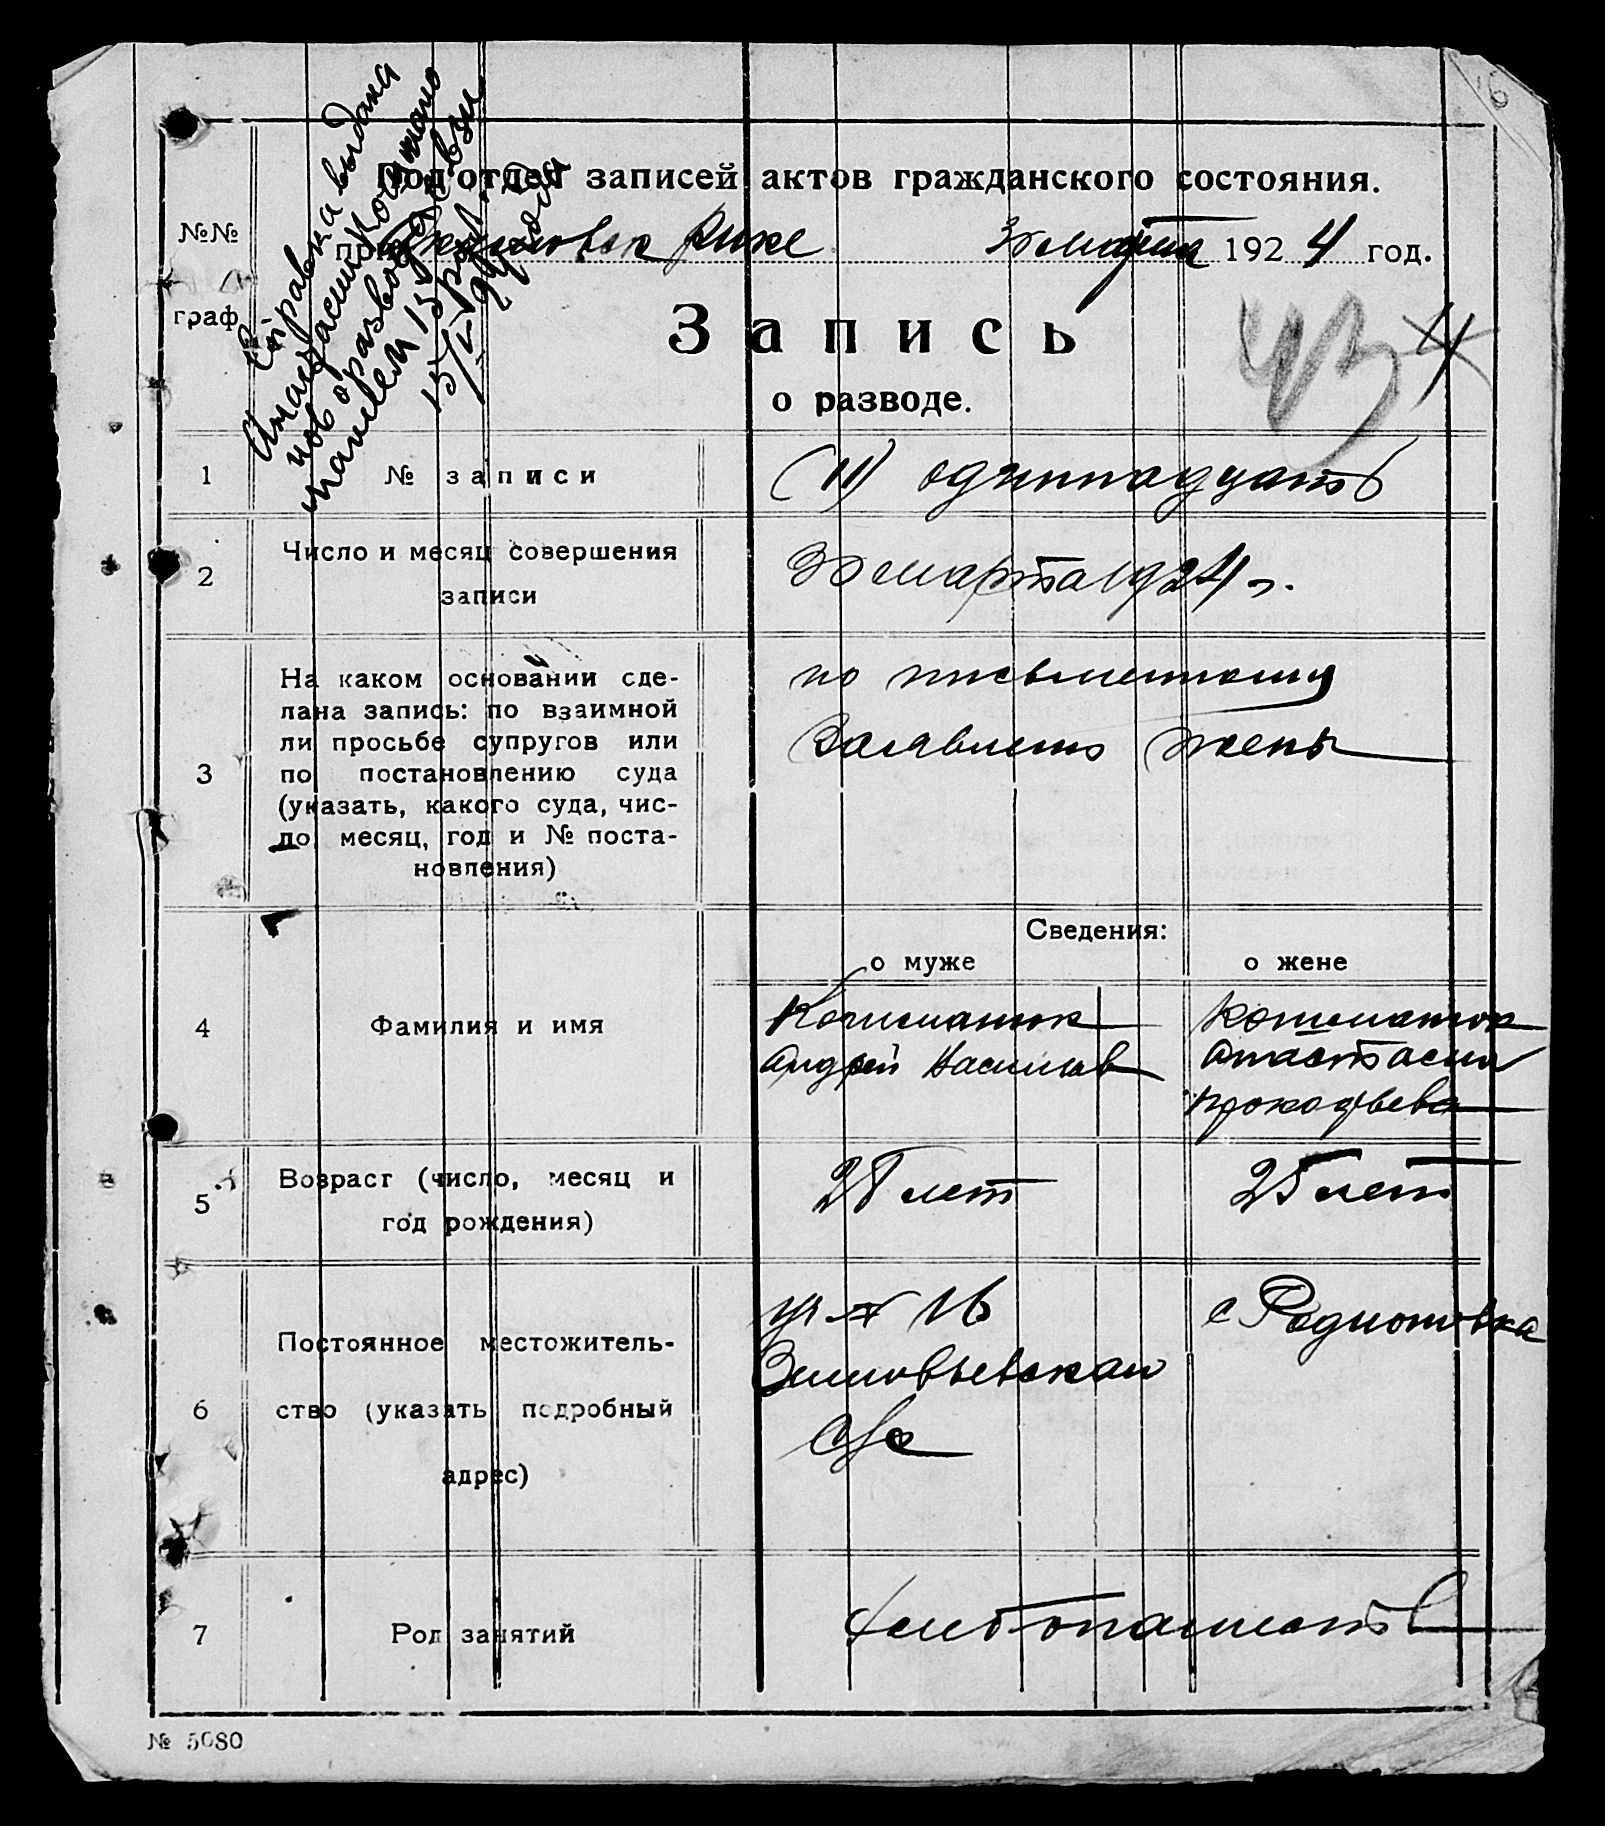 16
Справка выдана
о разводе
Подотдел записей актов гражданского состояния.
№№
при
марта 1924 год.
граф
Запись
43
4
о разводе.
1 № записи (11) одиннадцать
2 Число и месяц совершения
записи
30 марта 1924 г.
3 На каком основании сде-
лана запись: по взаимной
ли просьбе супругов или
по постановлению суда
(указать, какого суда, чис-
ло месяц, год и № поста-
новления)
по письменному
заявлению жены
Сведения:
о муже о жене
4 Фамилия и имя
Андрей Васильев
Анастасия
Прокофьева
5 Возраст (число, месяц и
год рождения)
лет 25 лет
6 Постоянное местожитель-
ство (указать подробный
адрес)
16
Зиновьевская
с/с
с Родионовка
7 Род занятий
хлебопашество
№ 5080